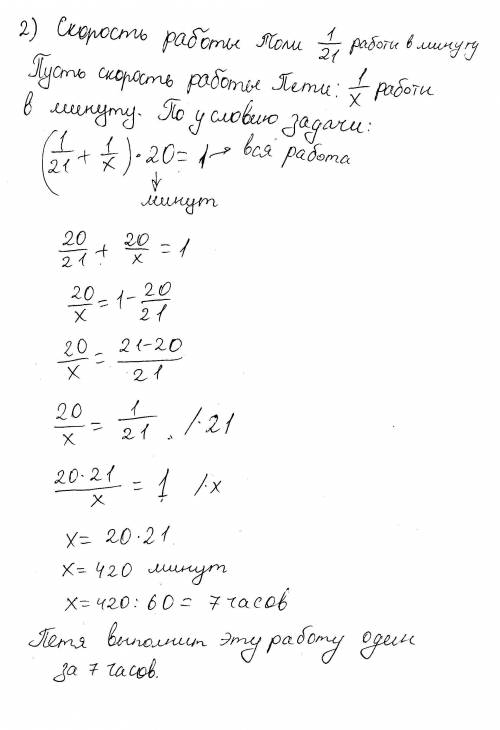 2) Скорость работы Поли 1/21 работы в минуту
Пусть скорость работы Пети: 1/x работы
в минуту. По условию задачи:
(1/21 + 1/x) · 20 = 1 → вся работа
↓
минут
20/21 + 20/x = 1
20/x = 1 - 20/21
20/x = (21-20)/21
20/x = 1/21 /·21
(20·21)/x = 1 /·x
x = 20·21
x = 420 минут
x = 420 : 60 = 7 часов
Петя выполнит эту работу один
за 7 часов.